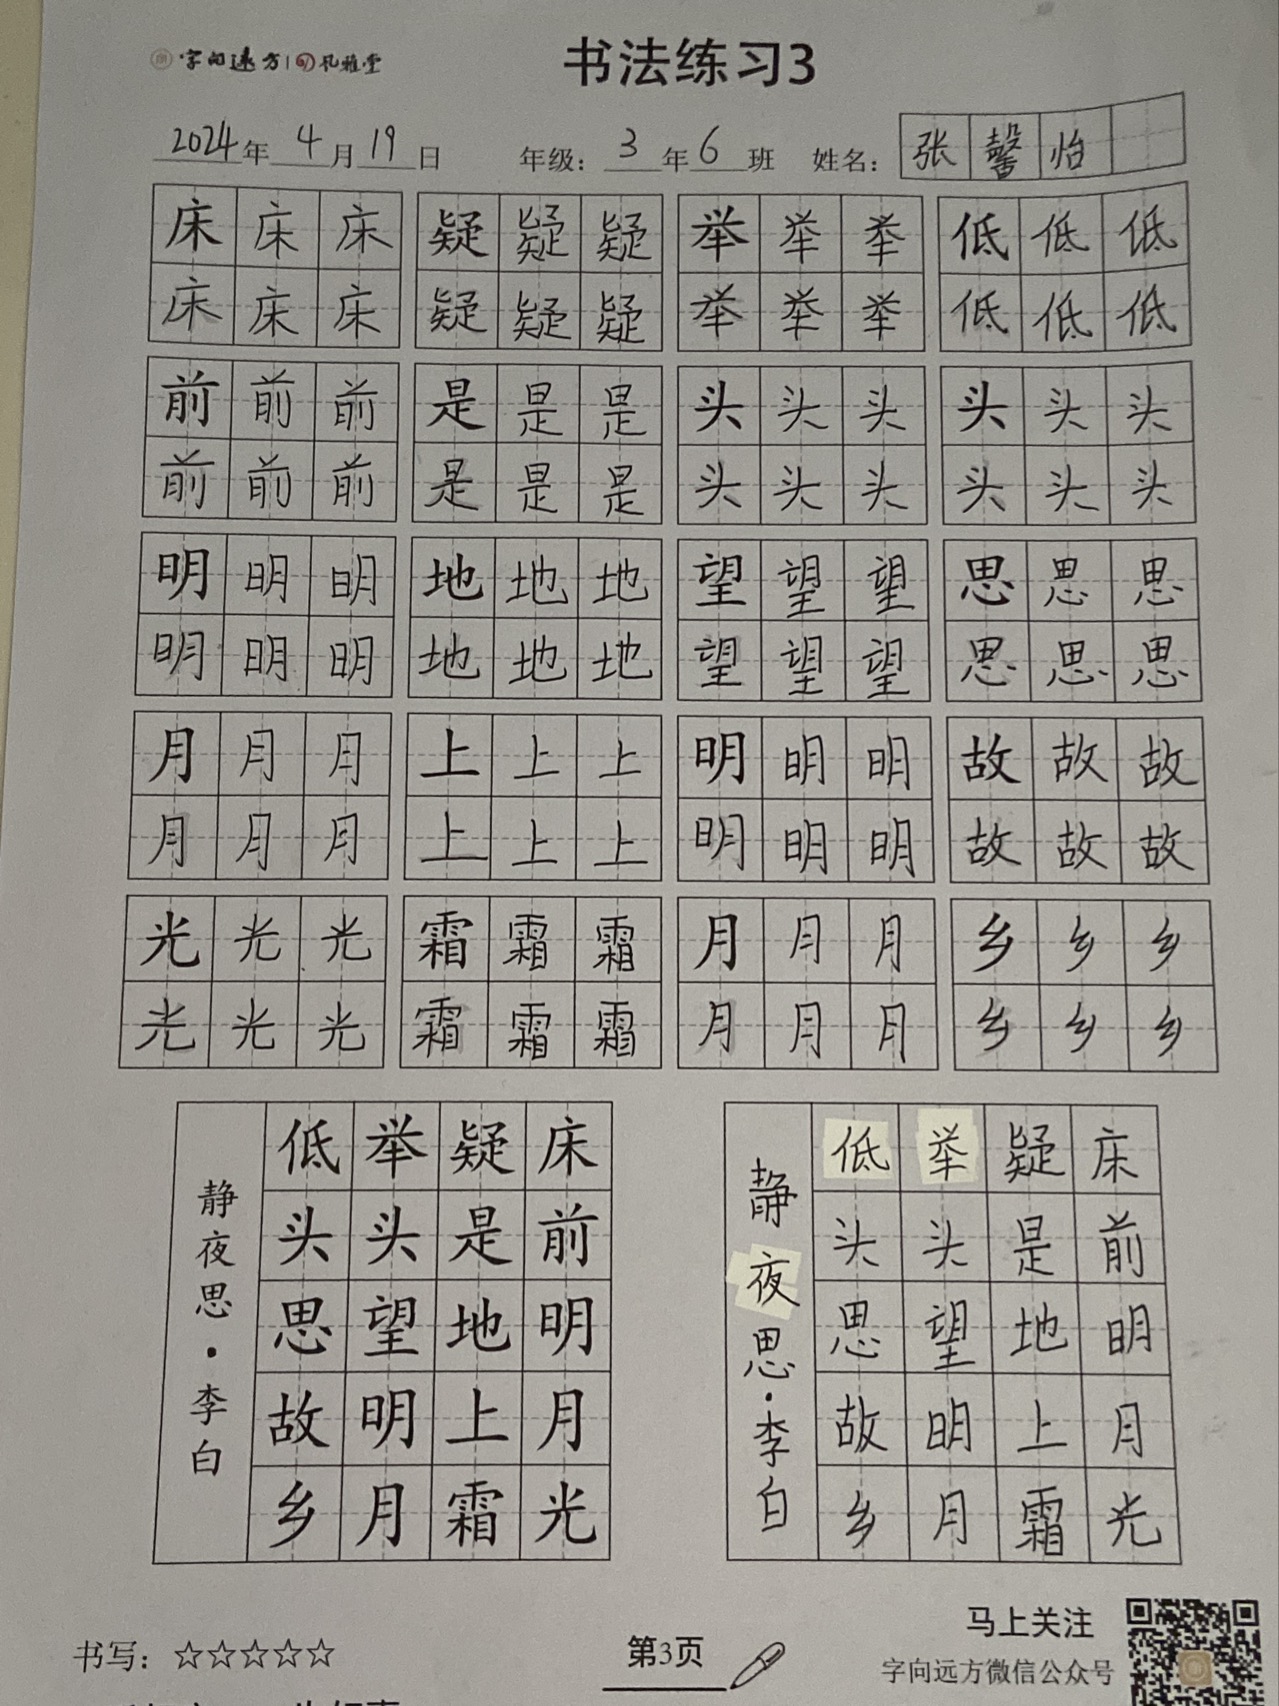 字向远方 孔雅堂
书法练习3
2024年4月19日 年级：3年6班 姓名：张馨怡
床床床 疑疑疑 举举举 低低低
床床床 疑疑疑 举举举 低低低
前前前 是是是 头头头 头头头
前前前 是是是 头头头 头头头
明明明 地地地 望望望 思思思
明明明 地地地 望望望 思思思
月月月 上上上 明明明 故故故
月月月 上上上 明明明 故故故
光光光 霜霜霜 月月月 乡乡乡
光光光 霜霜霜 月月月 乡乡乡
床前明月光
疑是地上霜
举头望明月
低头思故乡
静夜思·李白
床前明月光
疑是地上霜
举头望明月
低头思故乡
静夜思·李白
书写：☆☆☆☆☆
第3页
马上关注
字向远方微信公众号